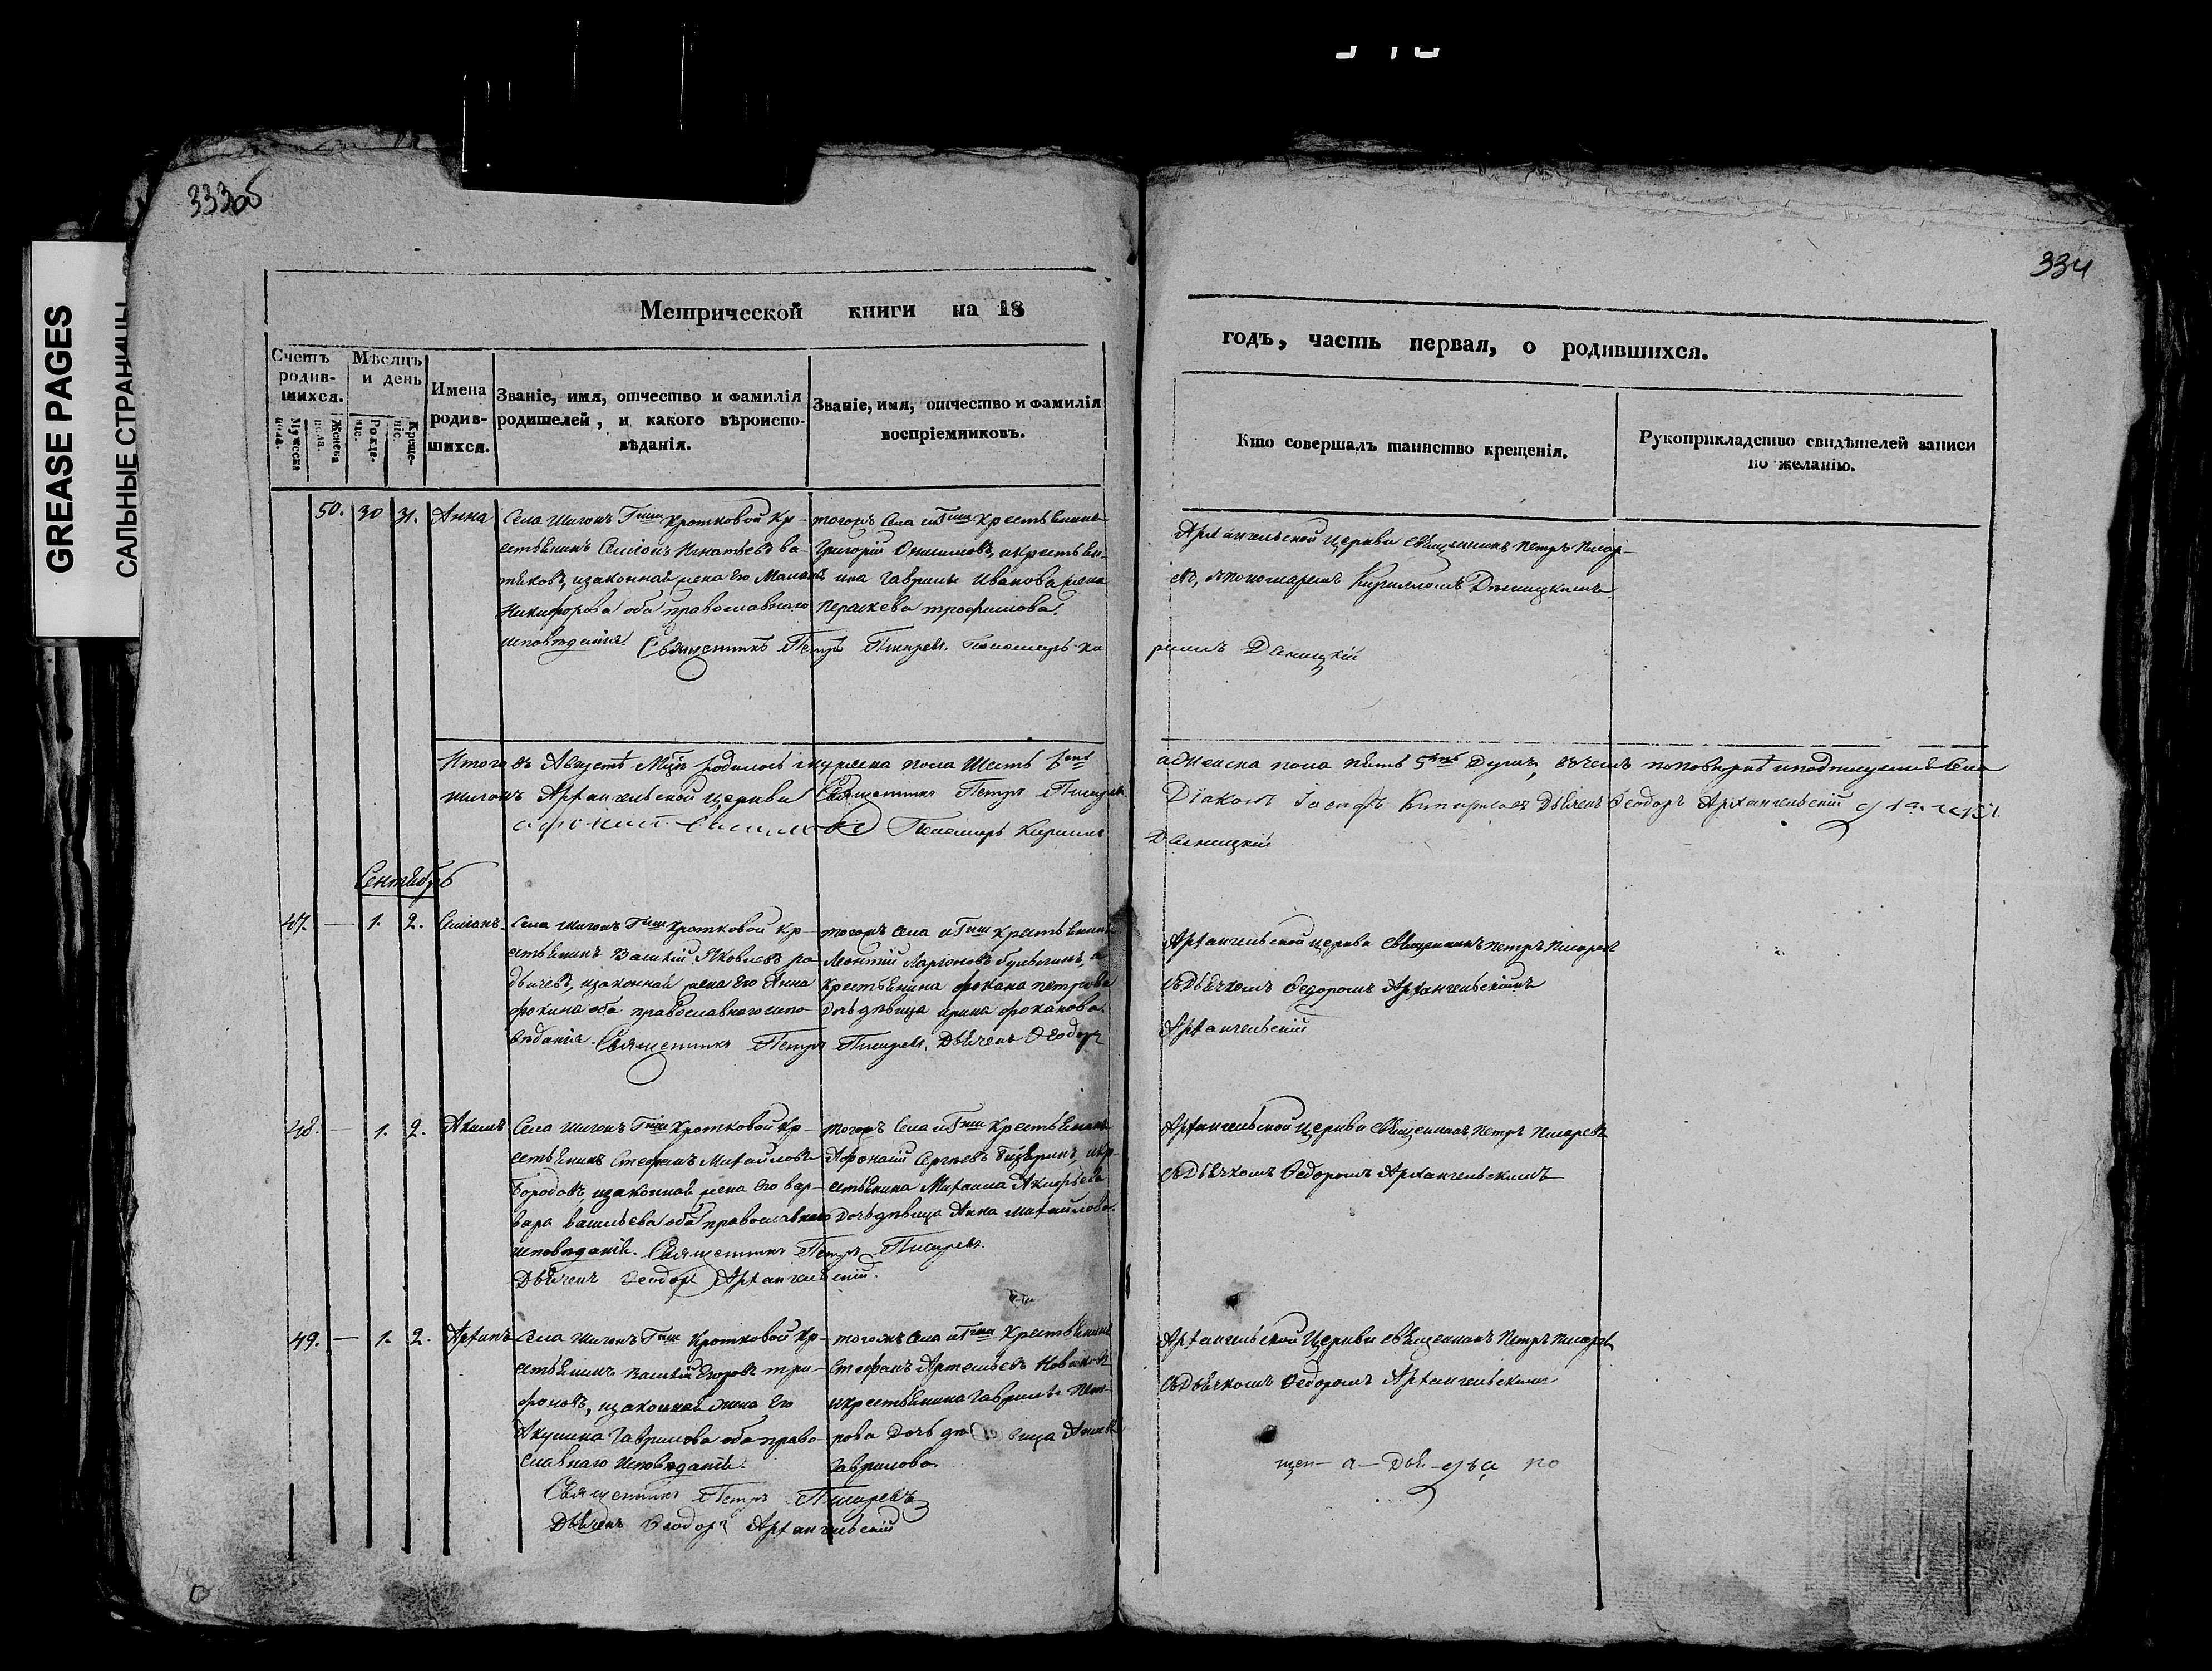 333об
334
GREASE PAGES
САЛЬНЫЕ СТРАНИЦЫ
Метрической книги на 18
годъ, часть первая, о родившихся.
Счетъ родив-шихся.
Мужеска пола.
Женска пола.
Мѣсяцъ и день
Рожде-ніе.
Креще-ніе.
Имена родив-шихся.
Званіе, имя, отчество и фамилія родителей, и какого вѣроиспо-вѣданія.
Званіе, имя, отчество и фамилія воспріемниковъ.
Кто совершалъ таинство крещенія.
Рукоприкладство свидѣтелей записи по желанію.
50. 30 31. Анна
Села Шигонъ Гпжи Кротковой кр-
естьянинъ Симіонъ Игнатьевъ
изаконная жена его
Никифорова оба православнаго
исповѣданія. Священникъ Петръ Писаревъ. Пономарь Ки
тогожъ села иГпжи крестьянинъ
Григорій Онисимовъ, икрестьян-
ина Гаврилы Иванова жена
Пераскева трофимова.
Архангельской церкви священникъ Петръ Писар-
евъ, спономаремъ Кирилломъ
рилъ
Итого въ Августѣ Мцѣ родилось мужеска пола Шесть 6ть
аженска пола пять 5ть душъ, въчемъ
Шигонъ Архангельской церкви Священникъ Петръ Писаревъ
Діаконъ Іосифъ Кипарисовъ Дьячекъ Ѳеодоръ Архангельскій
Пономарь Кирилъ
Сентябрь
47. — 1. 2. Симіонъ
Села Шигонъ Гпжи Кротковой кр-
естьянинъ Василій Яковлевъ ро-
дичевъ, изаконная жена его Анна
фокина оба православнаго испо-
вѣданія. Священникъ Петръ Писаревъ, Дьячекъ Ѳеодоръ
тогожъ села иГпжи крестьянинъ
Леонтій Ларіоновъ Булыгинъ, и
крестьянина фокана петрова
дочь дѣвица ирина фоканова.
Архангельской церкви Священникъ Петръ Писаревъ
сдьячкомъ Ѳедоромъ Архангельскимъ
Архангельскій
48. — 1. 2. Акимъ
Села Шигонъ Гпжи Кротковой кр-
естьянинъ Стефанъ Михайловъ
Бородовъ, изаконная жена его вар-
вара васильева оба православнаго
исповѣданія. Священникъ Петръ Писаревъ.
Дьячекъ Ѳеодоръ Архангельскій.
тогожъ села иГпжи крестьянинъ
Афонасій Сергѣевъ икр-
естьянина Михаила
дочь дѣвица Анна михайлова.
Архангельской церкви Священникъ Петръ Писаревъ
сдьячкомъ Ѳедоромъ Архангельскимъ
49. — 1. 2. Архипъ
Села Шигонъ Гпжи Кротковой кр-
естьянинъ Василій Егоровъ три-
фоновъ, изаконная жена его
Акулина Гаврилова оба право-
славнаго исповѣданія.
Священникъ Петръ Писаревъ
Дьячекъ Ѳеодоръ Архангельскій
тогожъ села иГпжи крестьянинъ
Стефанъ Артемьевъ
икрестьянина Гаврилы пет-
рова дочь дѣвица
Гаврилова.
Архангельской церкви священникъ Петръ Писаревъ
сдьячкомъ Ѳедоромъ Архангельскимъ